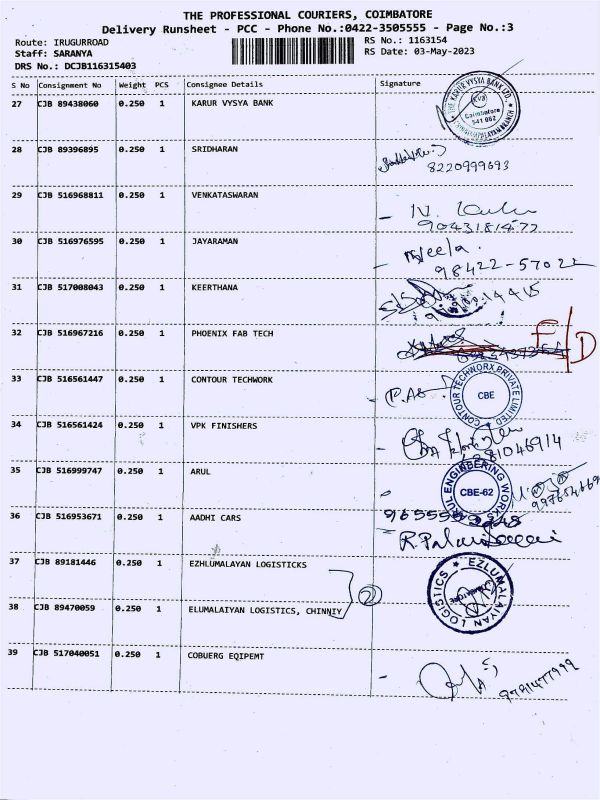 THE PROFESSIONAL COURIERS, COIMBATORE
Delivery Runsheet - PCC - Phone No.:0422-3505555 - Page No.:3
Route: IRUGURROAD
RS No.: 1163154
Staff: SARANYA
RS Date: 03-May-2023
DRS No.: DCJB116315403
S No Consignment No Weight PCS Consignee Details Signature
27 CJB 89438060 0.250 1 KARUR VYSYA BANK
THE KARUR VYSYA BANK LTD.
KVB
Coimbatore
641 062
28 CJB 89396895 0.250 1 SRIDHARAN
8220999693
29 CJB 516968811 0.250 1 VENKATASWARAN
30 CJB 516976595 0.250 1 JAYARAMAN
Neela.
98422-57022
31 CJB 517008043 0.250 1 KEERTHANA
32 CJB 516967216 0.250 1 PHOENIX FAB TECH
F/D
33 CJB 516561447 0.250 1 CONTOUR TECHWORK
CONTOUR TECHWORX PRIVATE LIMITED
CBE
34 CJB 516561424 0.250 1 VPK FINISHERS
35 CJB 516999747 0.250 1 ARUL
ENGINEERING WORKS
CBE-62
36 CJB 516953671 0.250 1 AADHI CARS
37 CJB 89181446 0.250 1 EZHLUMALAYAN LOGISTICKS
EZLUMALAIYAN LOGISTICS
2
38 CJB 89470059 0.250 1 ELUMALAIYAN LOGISTICS, CHINNIY
39 CJB 517040051 0.250 1 COBUERG EQIPEMT
9791477999